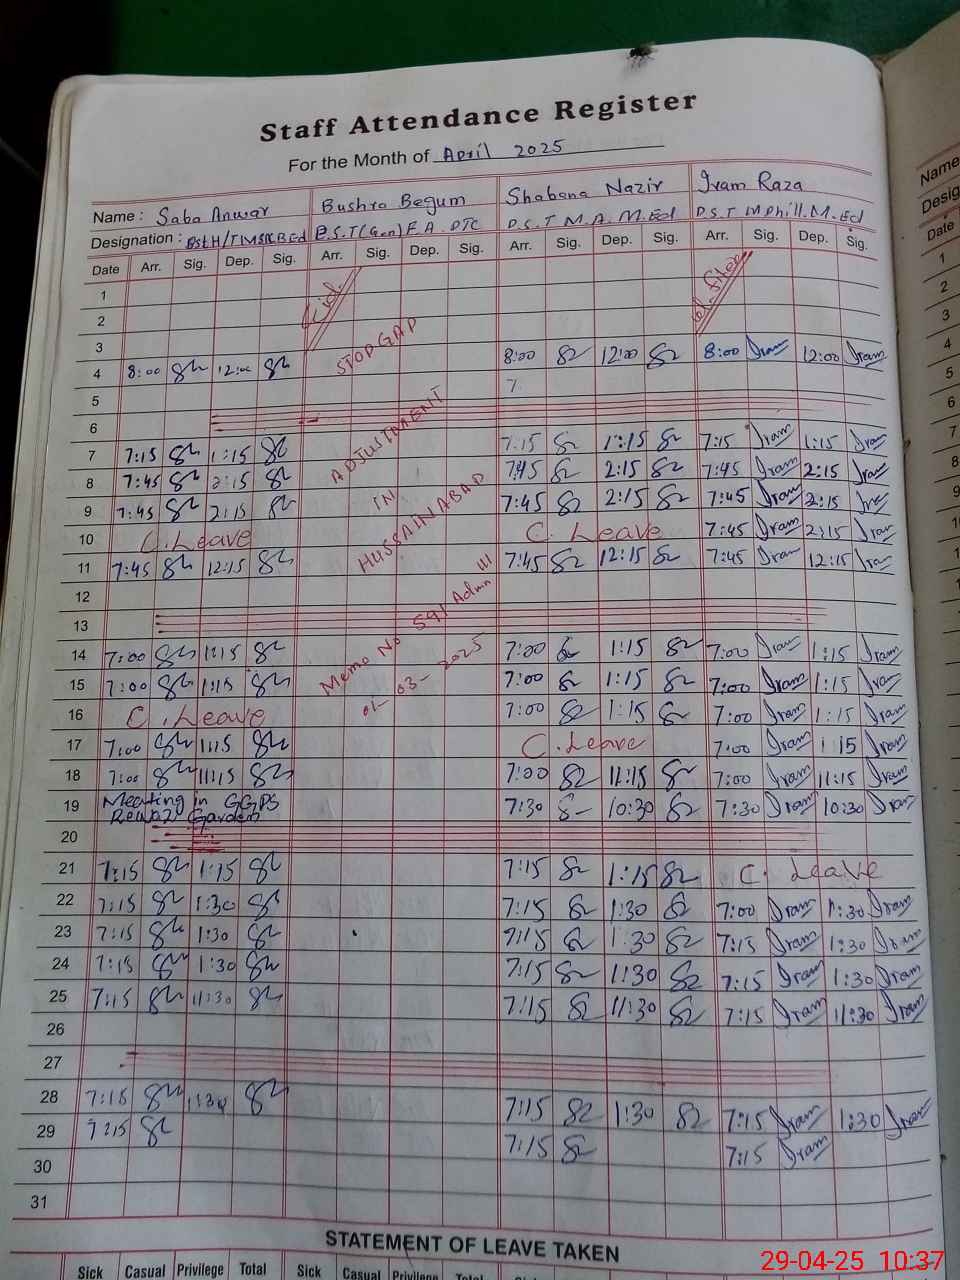 Staff Attendance Register
For the Month of April 2025
Name : Saba Anwar Bushra Begum Shabana Nazir Iram Raza
Designation : P.S.T (Gen) F.A. PTC P.S.T M.A. M.Ed P.S.T M Phill. M. Ed
Date Arr. Sig. Dep. Sig. Arr. Sig. Dep. Sig. Arr. Sig. Dep. Sig. Arr. Sig. Dep. Sig.
1
2
3
4 8:00 12:00 8:00 12:00 8:00 Iram 12:00 Iram
5 7.
6
7 7:15 1:15 7:15 1:15 7:15 Iram 1:15 Iram
8 7:45 2:15 7:45 2:15 7:45 Iram 2:15 Iram
9 7:45 2:15 7:45 2:15 7:45 Iram 2:15 Iram
10 C. Leave C. Leave 7:45 Iram 2:15 Iram
11 7:45 12:15 7:45 12:15 7:45 Iram 12:15 Iram
12
13
14 7:00 1:15 7:00 1:15 7:00 Iram 1:15 Iram
15 7:00 1:15 7:00 1:15 7:00 Iram 1:15 Iram
16 C. Leave 7:00 1:15 7:00 Iram 1:15 Iram
17 7:00 1:15 C. Leave 7:00 Iram 1:15 Iram
18 7:00 11:15 7:00 11:15 7:00 Iram 11:15 Iram
19 Meating in GGPS 7:30 10:30 7:30 Iram 10:30 Iram
Garden
20
21 7:15 1:15 7:15 1:15 C. Leave
22 7:15 1:30 7:15 1:30 7:00 Iram 1:30 Iram
23 7:15 1:30 7:15 1:30 7:15 Iram 1:30 Iram
24 7:15 1:30 7:15 1:30 7:15 Iram 1:30 Iram
25 7:15 11:30 7:15 11:30 7:15 Iram 11:30 Iram
26
27
28 7:15 1:30 7:15 1:30 7:15 Iram 1:30 Iram
29 7:15 7:15 7:15 Iram
30
31
STOP GAP
ADJUSTMENT
IN
HUSSAINABAD
Memo No 591 Admn III
01-03-2025
STATEMENT OF LEAVE TAKEN
Sick Casual Privilege Total Sick Casual Privilege Total
Name
Desig
Date
1
2
3
4
5
6
7
8
9
10
29-04-25 10:37